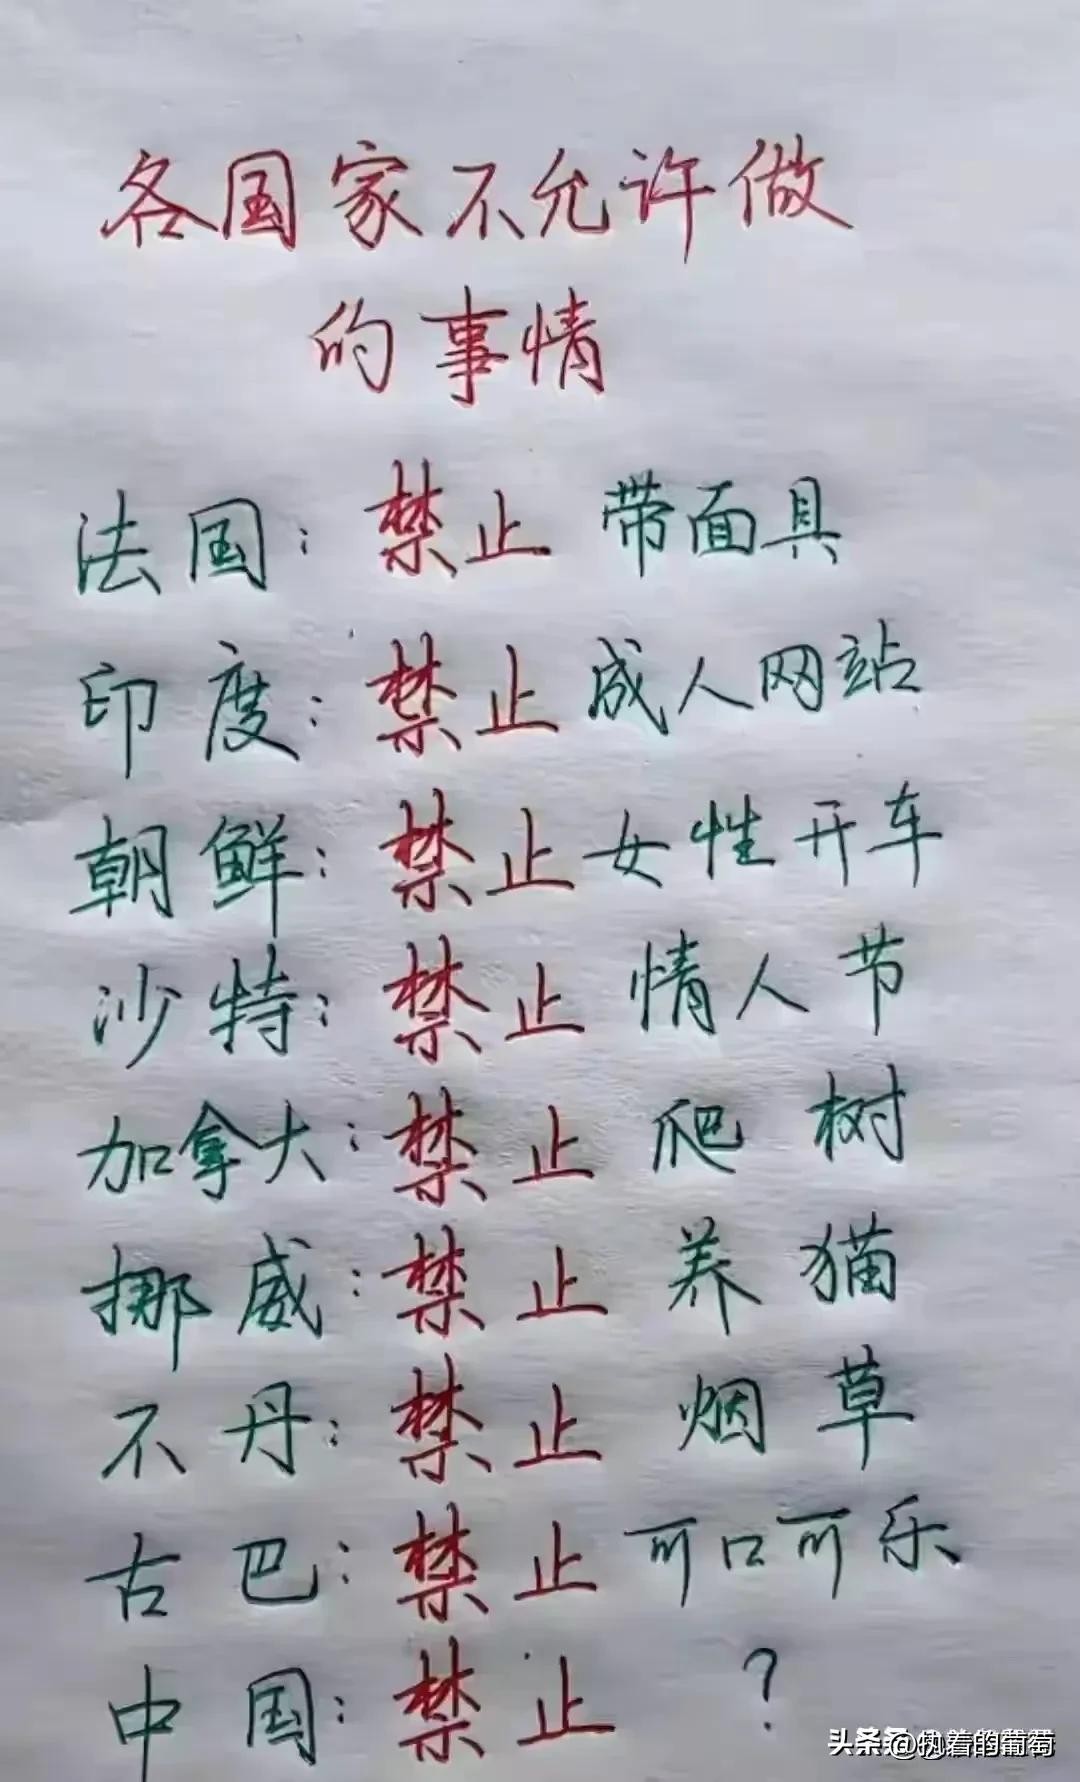 各国家不允许做
的事情
法国：禁止 带面具
印度：禁止成人网站
朝鲜：禁止女性开车
沙特：禁止 情人节
加拿大：禁止 爬树
挪威：禁止 养猫
不丹：禁止 烟草
古巴：禁止可口可乐
中国：禁止 ？
头条 @执着的葡萄